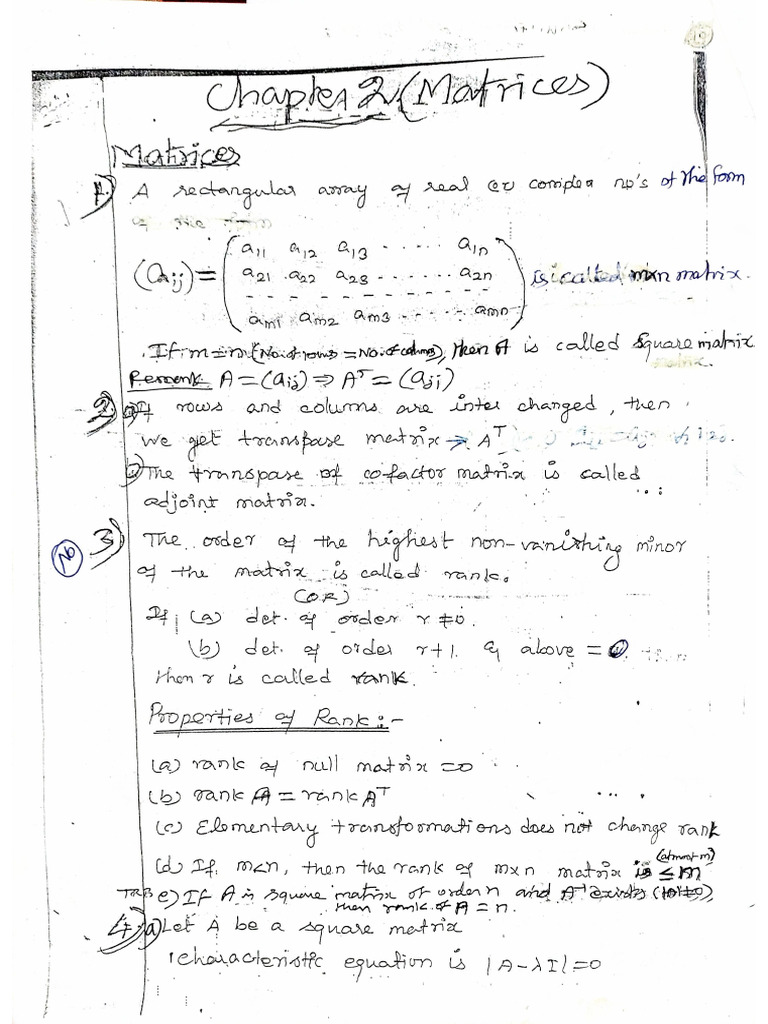 Chapter 2 (Matrices)
Matrices
1) A rectangular array of real (or) complex no's of the form
(aij) = ( a11 a12 a13 ...... a1n
a21 a22 a23 ...... a2n
- - - - - - - - - - - -
am1 am2 am3 ..... amn ) is called mxn matrix.
If m=n (No. of rows = No. of colums), then A is called Square matrix
Remark A = (aij) ⇒ A^T = (aji)
2) a) If rows and columns are inter changed, then
we get transpose matrix → A^T
b) The transpose of cofactor matrix is called
adjoint matrix.
No 3) The order of the highest non-vanishing minor
of the matrix is called rank.
(OR)
If (a) det. of order r ≠ 0.
(b) det. of order r+1. & above = 0
then r is called rank.
Properties of Rank:-
(a) rank of null matrix = 0
(b) rank A = rank A^T
(c) Elementary transformations does not change rank
(atmost m)
(d) If m<n, then the rank of mxn matrix is ≤ m
TRB e) If A is square matrix of order n and A⁻¹ exists (|A|≠0),
then rank of A = n.
4) a) Let A be a square matrix
characteristic equation is |A-λI|=0